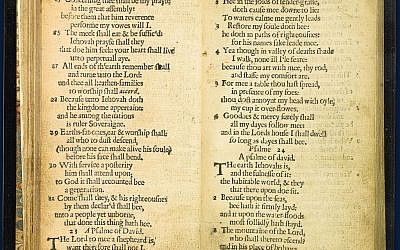 Concerning thee shall be my prayse
in the great assembly:
before them that him reverence
performe my vowes will I.
26 The meek shall eat & be suffic'd:
Iehovah prayse shall they
that doe him seek: your heart shall live
unto perpetuall aye.
27 All ends of th'earth remember shall
and turne unto the Lord:
and thee all heathen-families
to worship shall accord.
28 Because unto Iehovah doth
the kingdome appertaine:
and he among the nations
is ruler Soveraigne.
29 Earths-fat-ones, eat & worship shall:
all who to dust descend,
(though none can make alive his soule)
before his face shall bend.
30 With service a posterity
him shall attend upon;
to God it shall accounted bee
a generation.
31 Come shall they, & his righteousnes
by them declar'd shall bee,
unto a people yet unborne,
that done this thing hath hee.
23 A Psalme of David.
The Lord to mee a shepheard is,
want therefore shall not I.
2 Hee in the folds of tender-grasse,
doth cause mee downe to lie:
To waters calme me gently leads
3 Restore my soule doth hee:
he doth in paths of righteousnes:
for his names sake leade mee.
4 Yea though in valley of deaths shade
I walk, none ill I'le feare:
because thou art with mee, thy rod,
and staffe my comfort are.
5 For mee a table thou hast spread,
in presence of my foes:
thou dost annoynt my head with oyle,
my cup it over-flowes.
6 Goodnes & mercy surely shall
all my dayes follow mee:
and in the Lords house I shall dwell
so long as dayes shall bee.
Psalme 24
A psalme of david.
The earth Iehovahs is,
and the fulnesse of it:
the habitable world, & they
that there upon doe sit.
2 Because upon the seas,
hee hath it firmly layd:
and it upon the water-floods
most sollidly hath stayd.
3 The mountaine of the Lord,
who shall thereto ascend?
and in his place of holynes